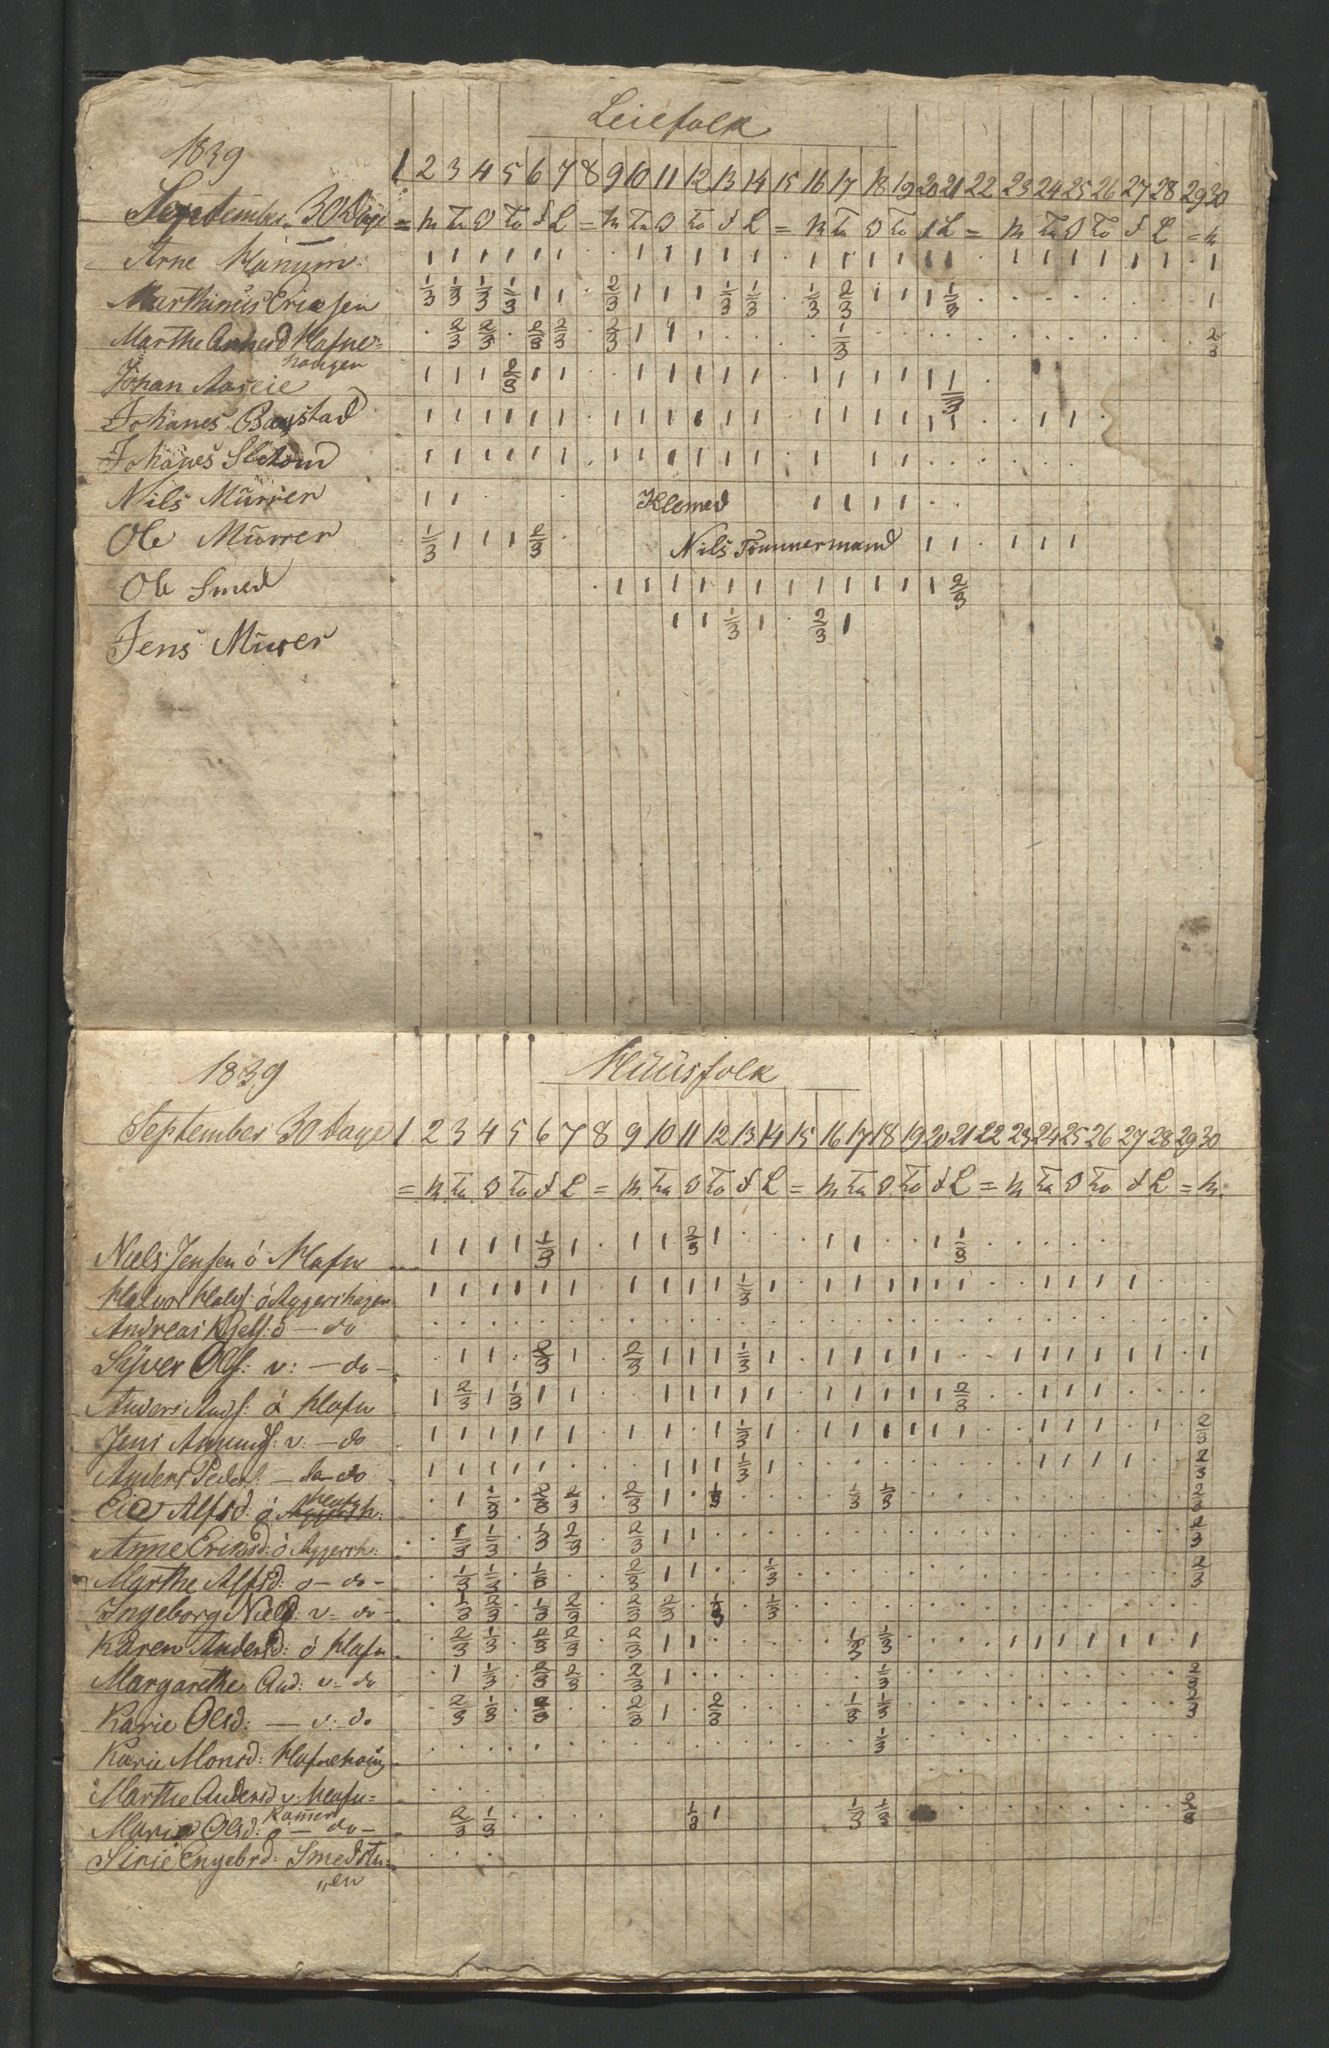 Leiefolk
1839
1 2 3 4 5 6 7 8 9 10 11 12 13 14 15 16 17 18 19 20 21 22 23 24 25 26 27 28 29 30
September 30 Dage = M Tu O To f L = M Tu O To f L = M Tu O To f L = M Tu O To f L = M
Arne 1 1 1 1 1 1 . 1 1 1 1 1 . 1 1 1 1 1 1 . 1 1 1 1 1 1 . 1
Marthinus Ericsen 1/3 1/3 1/3 1/3 1 1 . 2/3 1 1 1 1/3 1/3 . 1/3 2/3 1 1 1 1/3 . . . . . . . . 1
Marthe Andersd Hafne= . 2/3 2/3 . 2/3 2/3 . 2/3 1 1 1 . . . . . 1/3 . . . . . . . . . . . . 2/3
haugen
Johan 1 1 1 2/3 1 1 . . 1 1 1 1 1 . 1 1 1 1 1 1/3 .
Johanes Baystad 1 1 1 1 1 1 . 1 1 1 1 1 1 . 1 1 1 1 1 1 . . 1 1 .
Johanes 1 1 1 1 1 1 . 1 1 1 1 1 1 . 1 . 1 1 . . . . .
Nils Murrer 1 1 . . . . Klemed 1 1 1 1 . .
Ole Murrer 1/3 1 1 1 2/3 . Nils Tømmermand 1 1 . 1 1 1
Ole Smed . 1 1 1 1 1 1 1 1 1 1 1 1 2/3
Jens Murer 1 1 1/3 1 . 2/3 1
1839
Huusfolk
September 30 Dage 1 2 3 4 5 6 7 8 9 10 11 12 13 14 15 16 17 18 19 20 21 22 23 24 25 26 27 28 29 30
= M Tu O To f L = M Tu O To f L = M Tu O To f L = M Tu O To f L = M
Niels Jensen ó Hafn 1 1 1 1 1/3 1 . 1 1 2/3 1 . . . 1 1 . . 1 1/3 . . . . .
Halvor Halvs: ó Aggershagen 1 1 1 1 1 1 . 1 1 1 1 1/3 1 . 1 1 1 1 1 1 . . 1 1 1 1 . .
Andreas Kjels: ó — do . . . . . . . . . . . . . . . . . . . . . . . . . . . . .
Syver Ols: v: — do — . 1 1 . 2/3 1 . 2/3 1 1 1 1/3 1 . 1 1 1 1 1 . . 1 1 1 1 1 1 . 1
Anders Ands: ó Hafn 1 2/3 1 1/3 1 1 . . 1 1 1 1 1 . 1 1 1 1 1 2/3 . . 1 1 1 . . . .
Jens Amunds: v: — do 1 1 1 1 1 1 . 1 1 1 . 1 1/3 1 . 1 1 1 1 1 1 . . 1 1 1 . 1 . 2/3
Anders Peders: — do — do 1 1 1 1 1 . . . 1 1 1 1/3 1 . . . . . . . . . 1 1 1 1 . . 2/3
Alfsd: ó . 1 1/3 . 2/3 2/3 . 2/3 1 . 1/3 . . . . 1/3 1/3 . . . . . . . . . . . 2/3
Anne Ericksd: ó Aggersh: . 1/3 1/3 . 1/3 2/3 . 2/3 1 1 . . . . . . . . . . . . . . . . . . 2/3
Marthe Alfsd: o — do — . 1/3 1/3 . 1/3 . . 2/3 1 1 . . 1/3 . . . . . . . . . . . . . . . 2/3
Ingeborg Nielsd: v — do — . 1/3 2/3 . 1/3 2/3 . 2/3 2/3 . 1/3 . 1/3 . . . . . . . . . . . . . . . .
Karen Andersd: ó Hafn . 2/3 1/3 . 2/3 2/3 . 2/3 1 1 . . . . . 1/3 1/3 . . . . 1 1 1 1 1 1 . 1
Margarethe And: v: do . 1 1/3 . 2/3 2/3 . 2/3 1 . . . . . . . 1/3 . . . . . . . . . . . 2/3
Karie Olsd: — v: do . 2/3 1/3 . 2/3 . . 2/3 1 . 2/3 . . . . 1/3 1/3 . . . . . . . . . . . 2/3
Karie Monsd: Hafnehoug . . . . . . . . . . . . . . . . 1/3 . . . . . . . . . . . .
Marthe Andersd v: Hafn= . . .
Kamer
Maria Olsd: ó — do — . 2/3 1/3 . . . . . . 1/3 1 . . . . 1/3 1/3 . . . . . . . . . . . 2/3
Sirie Engebrd: Smedstu . . .
„en